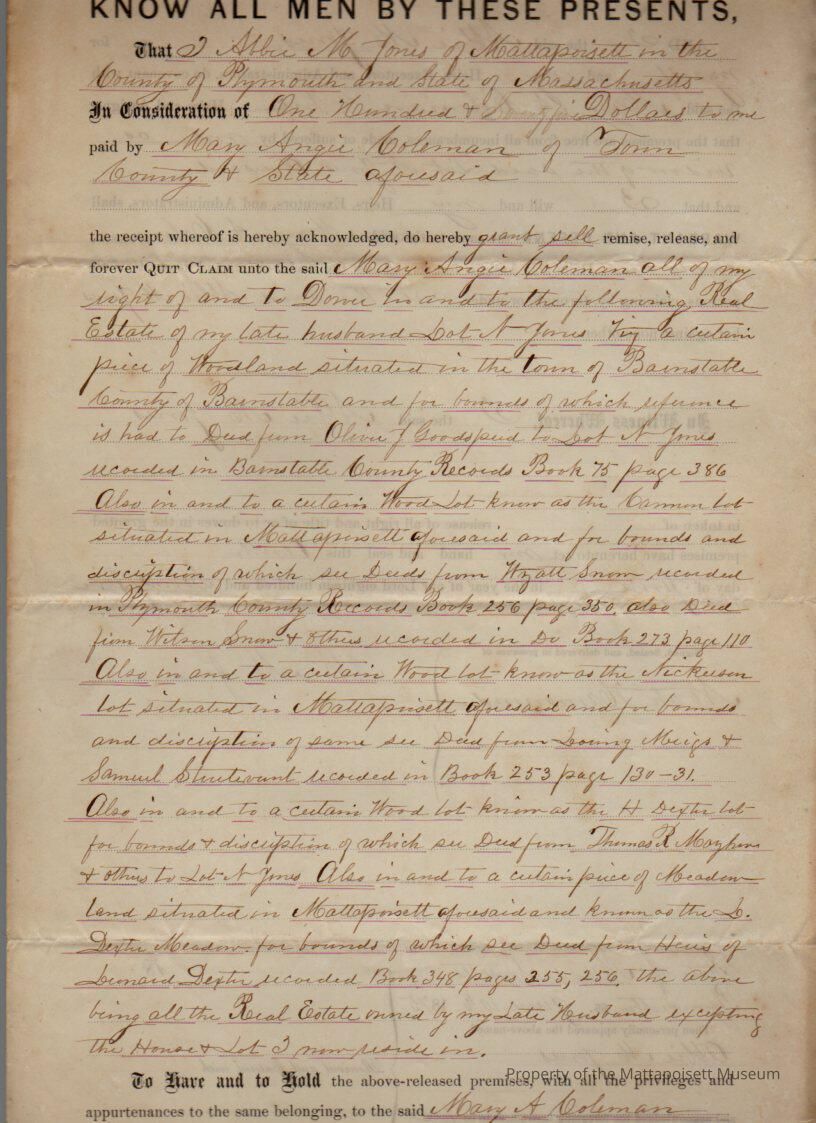 KNOW ALL MEN BY THESE PRESENTS,
That I Abbie M Jones of Mattapoisett in the
County of Plymouth and State of Massachusetts
In Consideration of One Hundred & Twenty five Dollars to me
paid by Mary Angie Coleman of Town
County & State aforesaid
the receipt whereof is hereby acknowledged, do hereby grant sell remise, release, and
forever QUIT CLAIM unto the said Mary Angie Coleman all of my
right of and to Dower in and to the following Real
Estate of my late husband Lot N Jones Viz a certain
piece of Woodland situated in the town of Barnstable
County of Barnstable and for bounds of which reference
is had to Deed from Oliver J Goodspeed to Lot N Jones
recorded in Barnstable County Records Book 75 page 386
Also in and to a certain Wood Lot know as the Cannon lot
situated in Mattapoisett aforesaid and for bounds and
discription of which see Deeds from Wyatt Snow recorded
in Plymouth County Records Book 256 page 350, also Deed
from Wilson Snow & others recorded in Do Book 273 page 110
Also in and to a certain Wood lot know as the Nickerson
lot situated in Mattapoisett aforesaid and for bounds
and discription of same see Deed from Loring Meigs &
Samuel Sturtevant recorded in Book 253 page 130-31.
Also in and to a certain Wood lot know as the H Dexter lot
for bounds & discription of which see Deed from Thomas R Mayhew
& others to Lot N Jones Also in and to a certain piece of Meadow
land situated in Mattapoisett aforesaid and known as the L.
Dexter Meadow. for bounds of which see Deed from Heirs of
Leonard Dexter recorded Book 348 pages 255, 256. the above
being all the Real Estate owned by my Late Husband excepting
the House & Lot I now reside in.
To Have and to Hold the above-released premises, with all the privileges and
Property of the Mattapoisett Museum
appurtenances to the same belonging, to the said Mary A Coleman